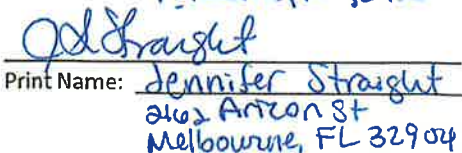 JStraight
Print Name: Jennifer Straight
2162 Arizon St
Melbourne, FL 32904